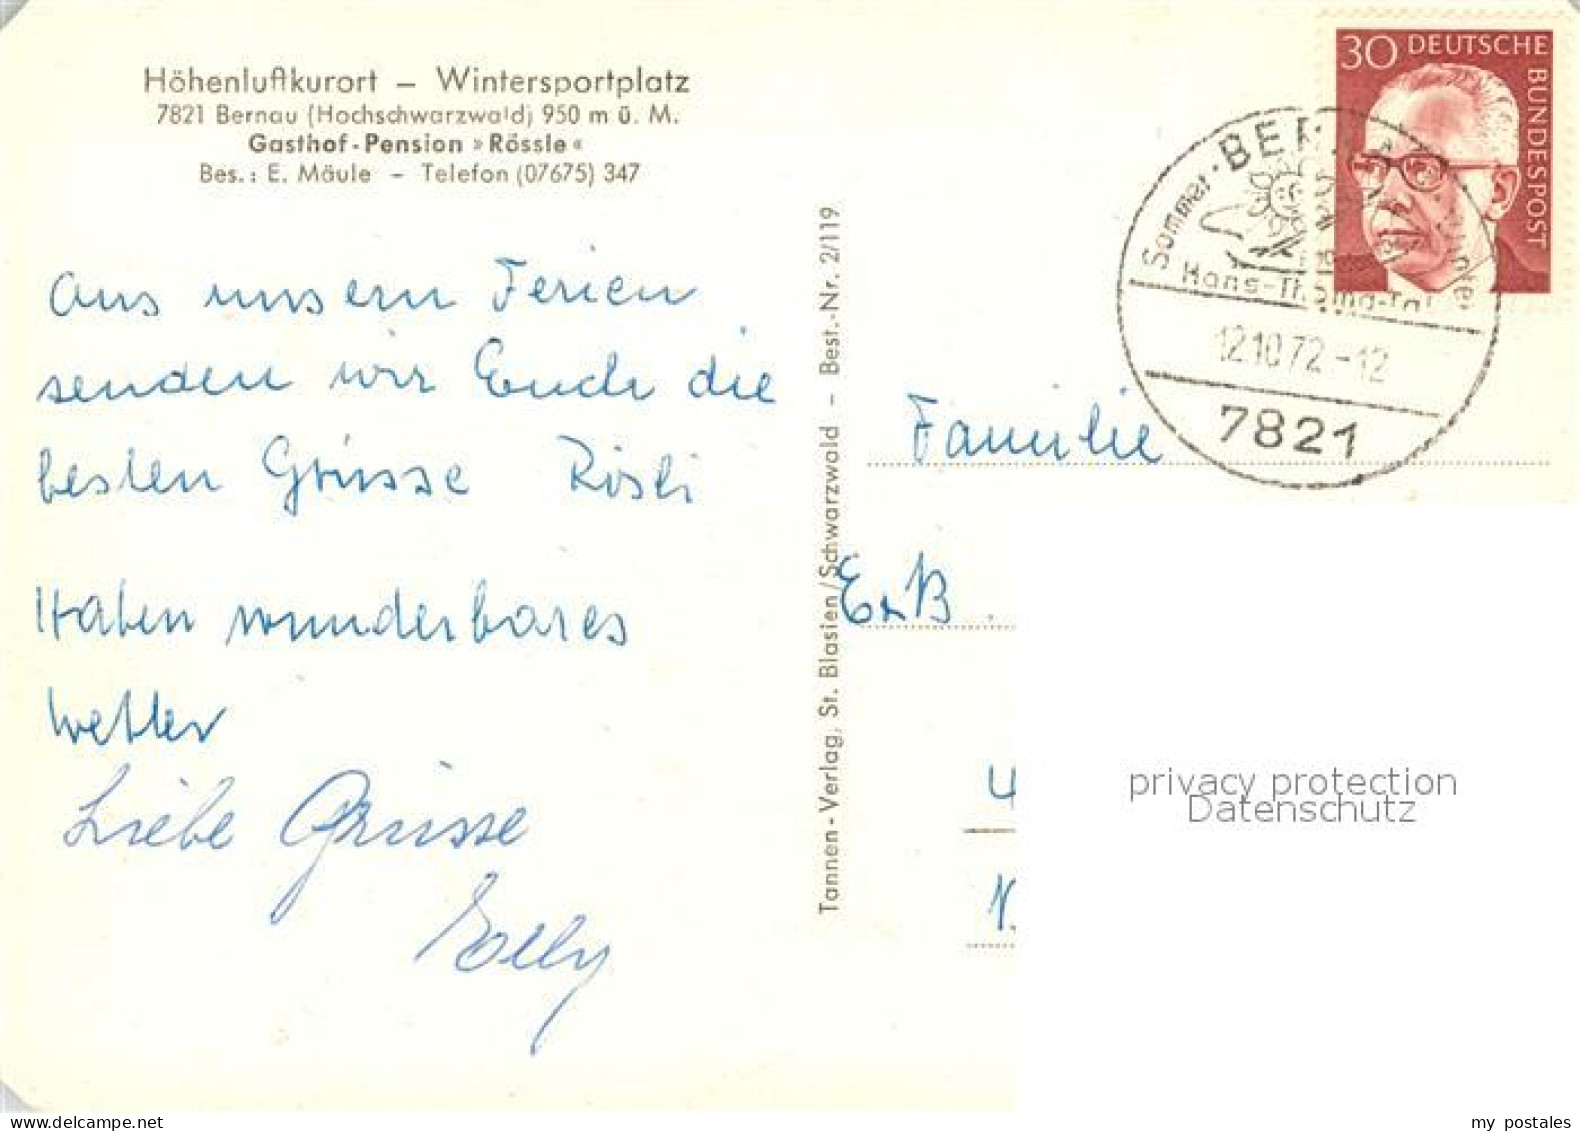 Höhenluftkurort – Wintersportplatz
7821 Bernau (Hochschwarzwald) 950 m ü. M.
Gasthof-Pension »Rössle«
Bes.: E. Mäule – Telefon (07675) 347
Aus unsern Ferien
senden wir Euch die
besten Grüsse Rösli
Haben wunderbares
Wetter
Liebe Grüsse
Tannen-Verlag, St. Blasien/Schwarzwald – Best.-Nr. 2/119
30 DEUTSCHE
BUNDESPOST
Sommer · BER
Winter
Hans-Thoma-Tal
12.10.72-12
7821
Familie
privacy protection
Datenschutz
www.delcampe.net
my_postales